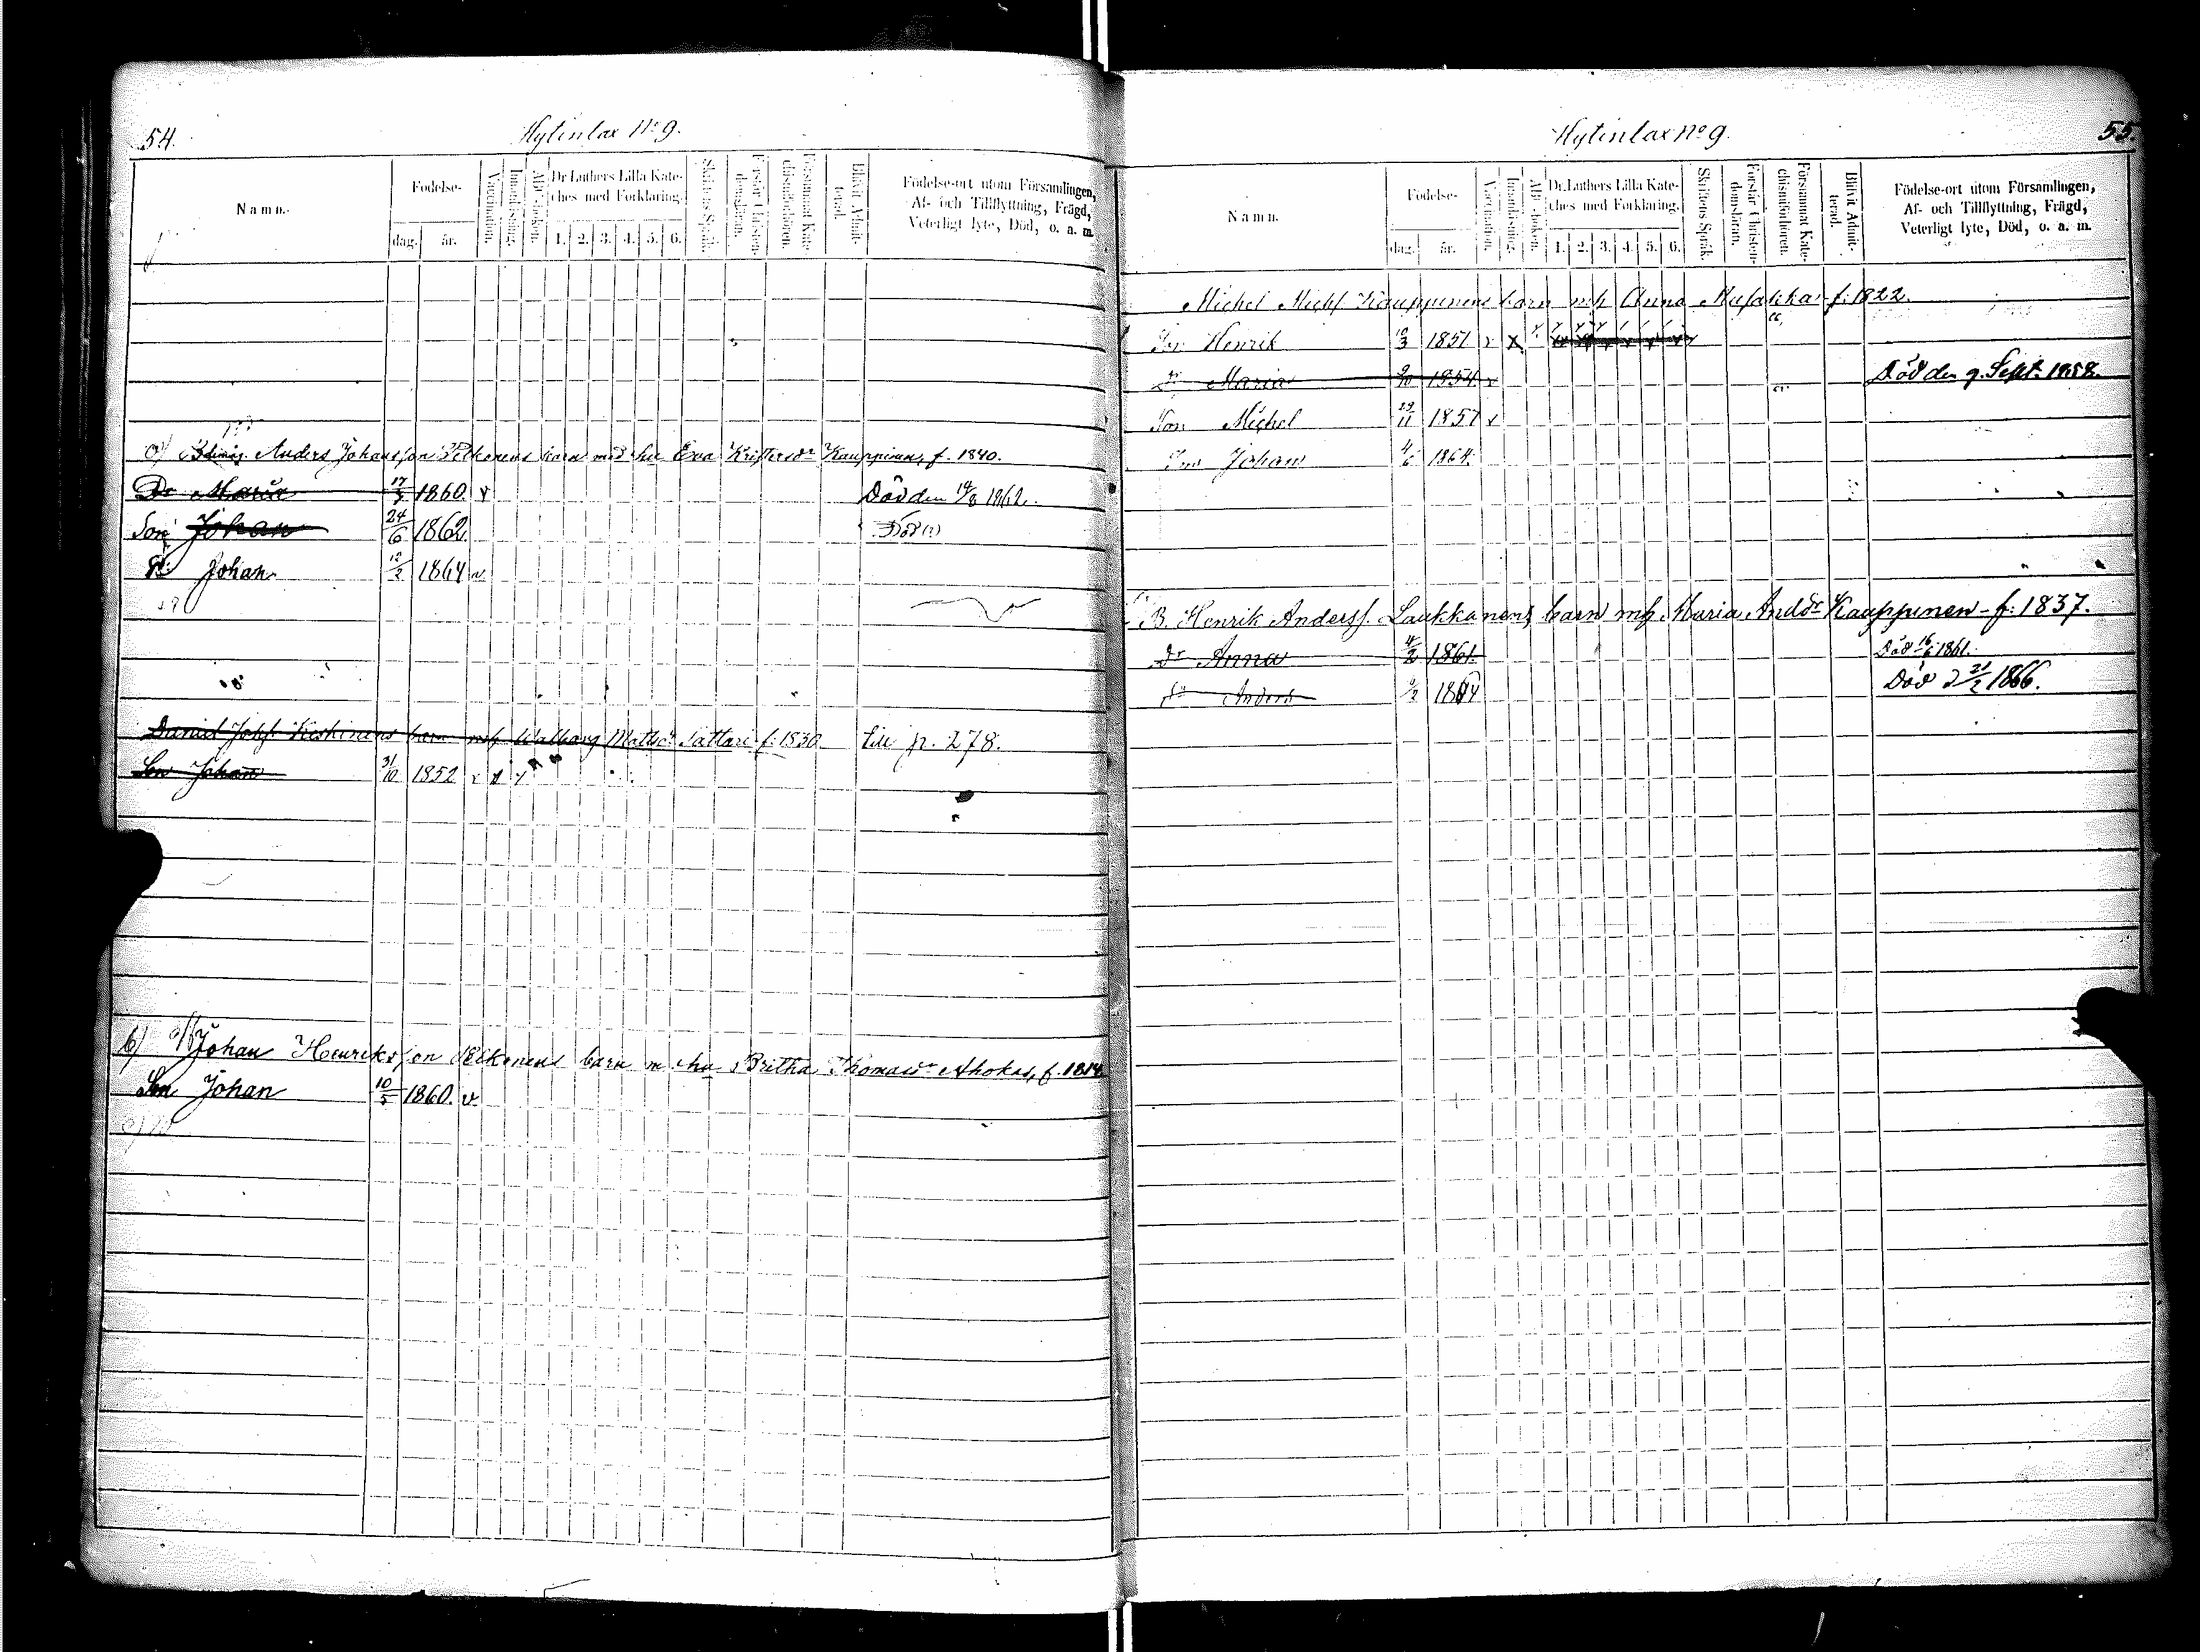 54.
Hytinlax No 9.
Namn.
Födelse-
dag.
år.
Vaccination.
Innanläsning.
Abc-boken.
Dr Luthers Lilla Kate-
ches med Förklaring.
1. 2. 3. 4. 5. 6.
Skriftens Språk.
Förstår Christen-
domsläran.
Försummat Kate-
chismiförhören.
Blifvit Admit-
terad.
Födelse-ort utom Församlingen,
Af- och Tillflyttning, Frägd,
Veterligt lyte, Död, o. a. m.
a) Anders Johansson Pelkonens barn med hu Eva Kristersdr Kauppinen, f. 1840.
Dr Maria 17/3 1860. v Död den 14/8 1862.
Son Johan 24/6 1862. Död
Sn Johan 12/2 1864 v
Daniel Johss. Keskinens barn mh Walborg Mattsdr Sattari f. 1830 till p. 278.
Son Johan 31/10 1852 v x y
b) Johan Henriksson Pelkonens barn m hu Britha Thomasdr Ahokas, f. 1814
Son Johan 10/5 1860. v
55.
Hytinlax No 9.
Namn.
Födelse-
dag.
år.
Vaccination.
Innanläsning.
Abc-boken.
Dr. Luthers Lilla Kate-
ches med Förklaring.
1. 2. 3. 4. 5. 6.
Skriftens Språk.
Förstår Christen-
domsläran.
Försummat Kate-
chismiförhören.
Blifvit Admit-
terad.
Födelse-ort utom Församlingen,
Af- och Tillflyttning, Frägd,
Veterligt lyte, Död, o. a. m.
Michel Michss Kauppinens barn mh Anna f. 1822.
Son Henrik 12/3 1851 v x
Dr Maria 9/10 1854 v Död den 9. Sept. 1858.
Son Michel 29/11 1857 v
Son Johan 4/6 1864.
B. Henrik Anderss. Laukkanens barn mh. Maria Anddr Kauppinen f. 1837.
Dr Anna 4/2 1861. Död 16/6 1861.
Sn Anders 9/2 1864 Död d 21/2 1866.